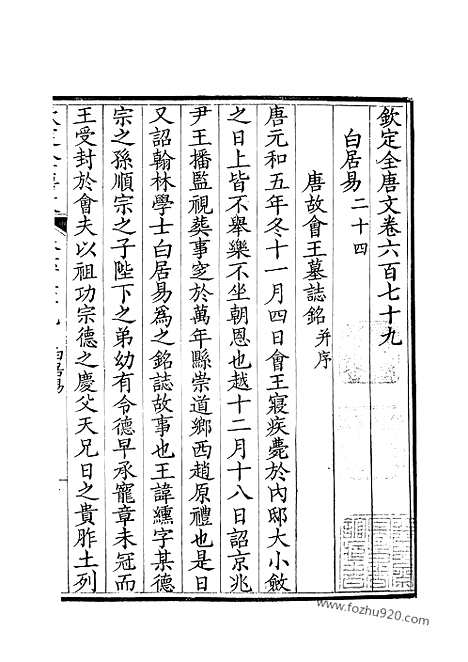 欽定全唐文卷六百七十九
白居易二十四
唐故會王墓誌銘并序
唐元和五年冬十一月四日會王寢疾薨於內邸大小斂
之日上皆不舉樂不坐朝恩也越十二月十八日詔京兆
尹王播監視葬事窆於萬年縣崇道鄉西趙原禮也是日
又詔翰林學士白居易爲之銘誌故事也王諱纁字某德
宗之孫順宗之子陛下之弟幼有令德早承寵章未冠而
王受封於會夫以祖功宗德之慶父天兄日之貴胙土列
www.fozhu920.com